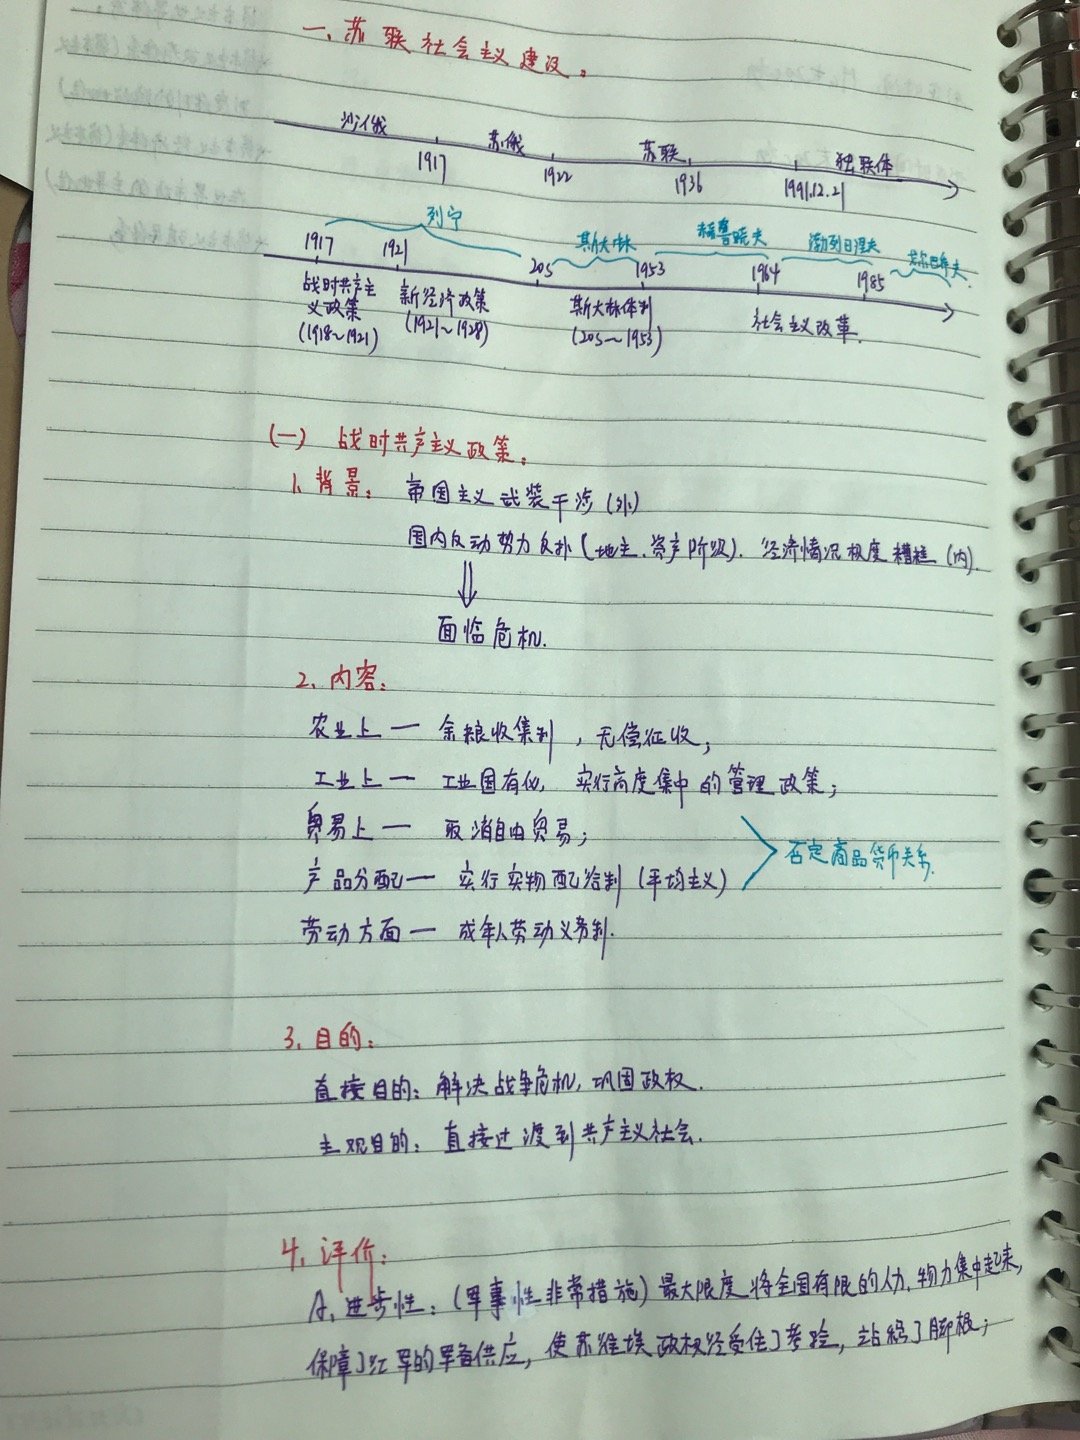 一、苏联社会主义建设。
沙俄 苏俄 苏联 独联体
1917 1922 1936 1991.12.21
列宁 斯大林 赫鲁晓夫 勃列日涅夫 戈尔巴乔夫
1917 1921 20s 1953 1964 1985
战时共产主义政策 新经济政策 斯大林体制 社会主义改革.
(1918~1921) (1921~1928) (20s~1953)
(一) 战时共产主义政策。
1、背景: 帝国主义武装干涉(外)
国内反动势力反扑(地主.资产阶级). 经济情况极度糟糕(内).
面临危机.
2、内容:
农业上— 余粮收集制,无偿征收;
工业上— 工业国有化, 实行高度集中的管理政策;
贸易上— 取消自由贸易;
否定商品货币关系.
产品分配— 实行实物配给制(平均主义)
劳动方面— 成年人劳动义务制.
3、目的:
直接目的: 解决战争危机,巩固政权.
主观目的: 直接过渡到共产主义社会.
4、评价:
A、进步性:(军事性非常措施)最大限度将全国有限的人力.物力集中起来,
保障了红军的军备供应,使苏维埃政权经受住了考验,站稳了脚根;